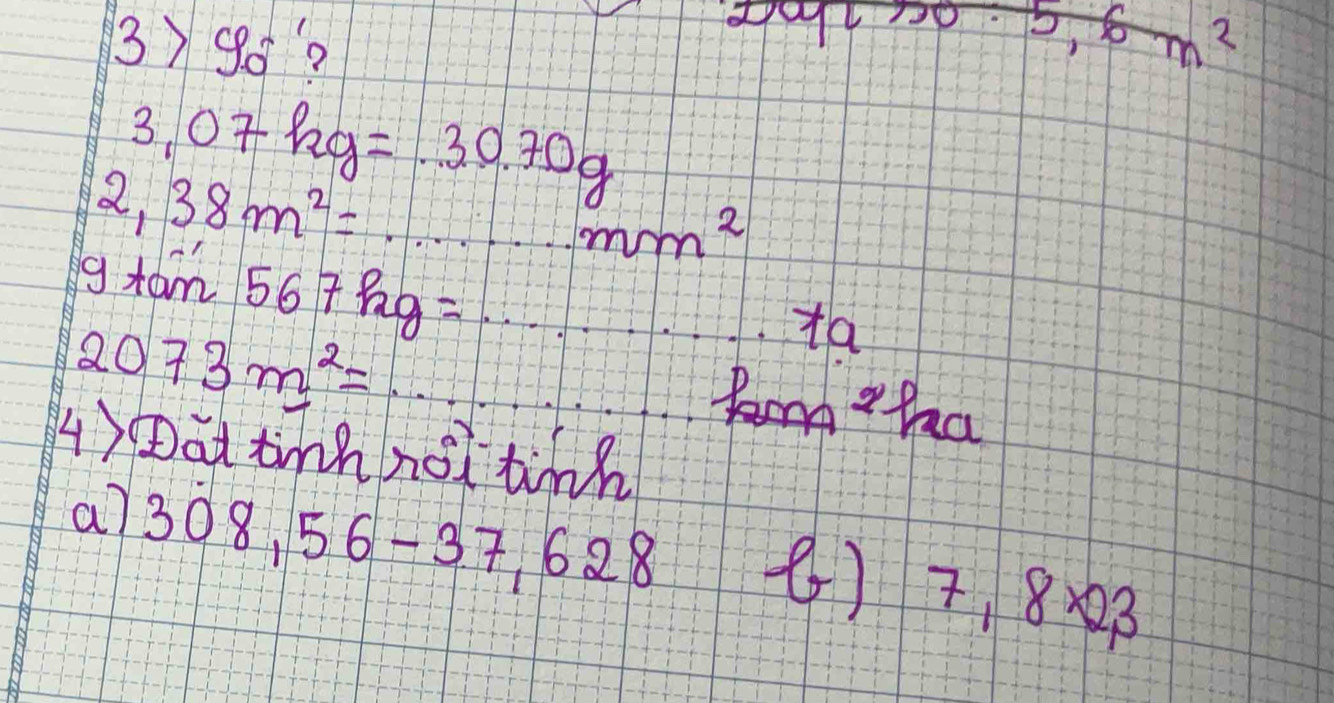 Đáp số : 5,6 m²
3> Số ?
3,07 kg = ..30.70g
2,38 m² = .......... mm²
9 tấn 567 kg = ............. tạ
2073 m² = ............. ha
4> Đặt tính rồi tính
a) 308,56 - 37,628 b) 7,8 x 2,3